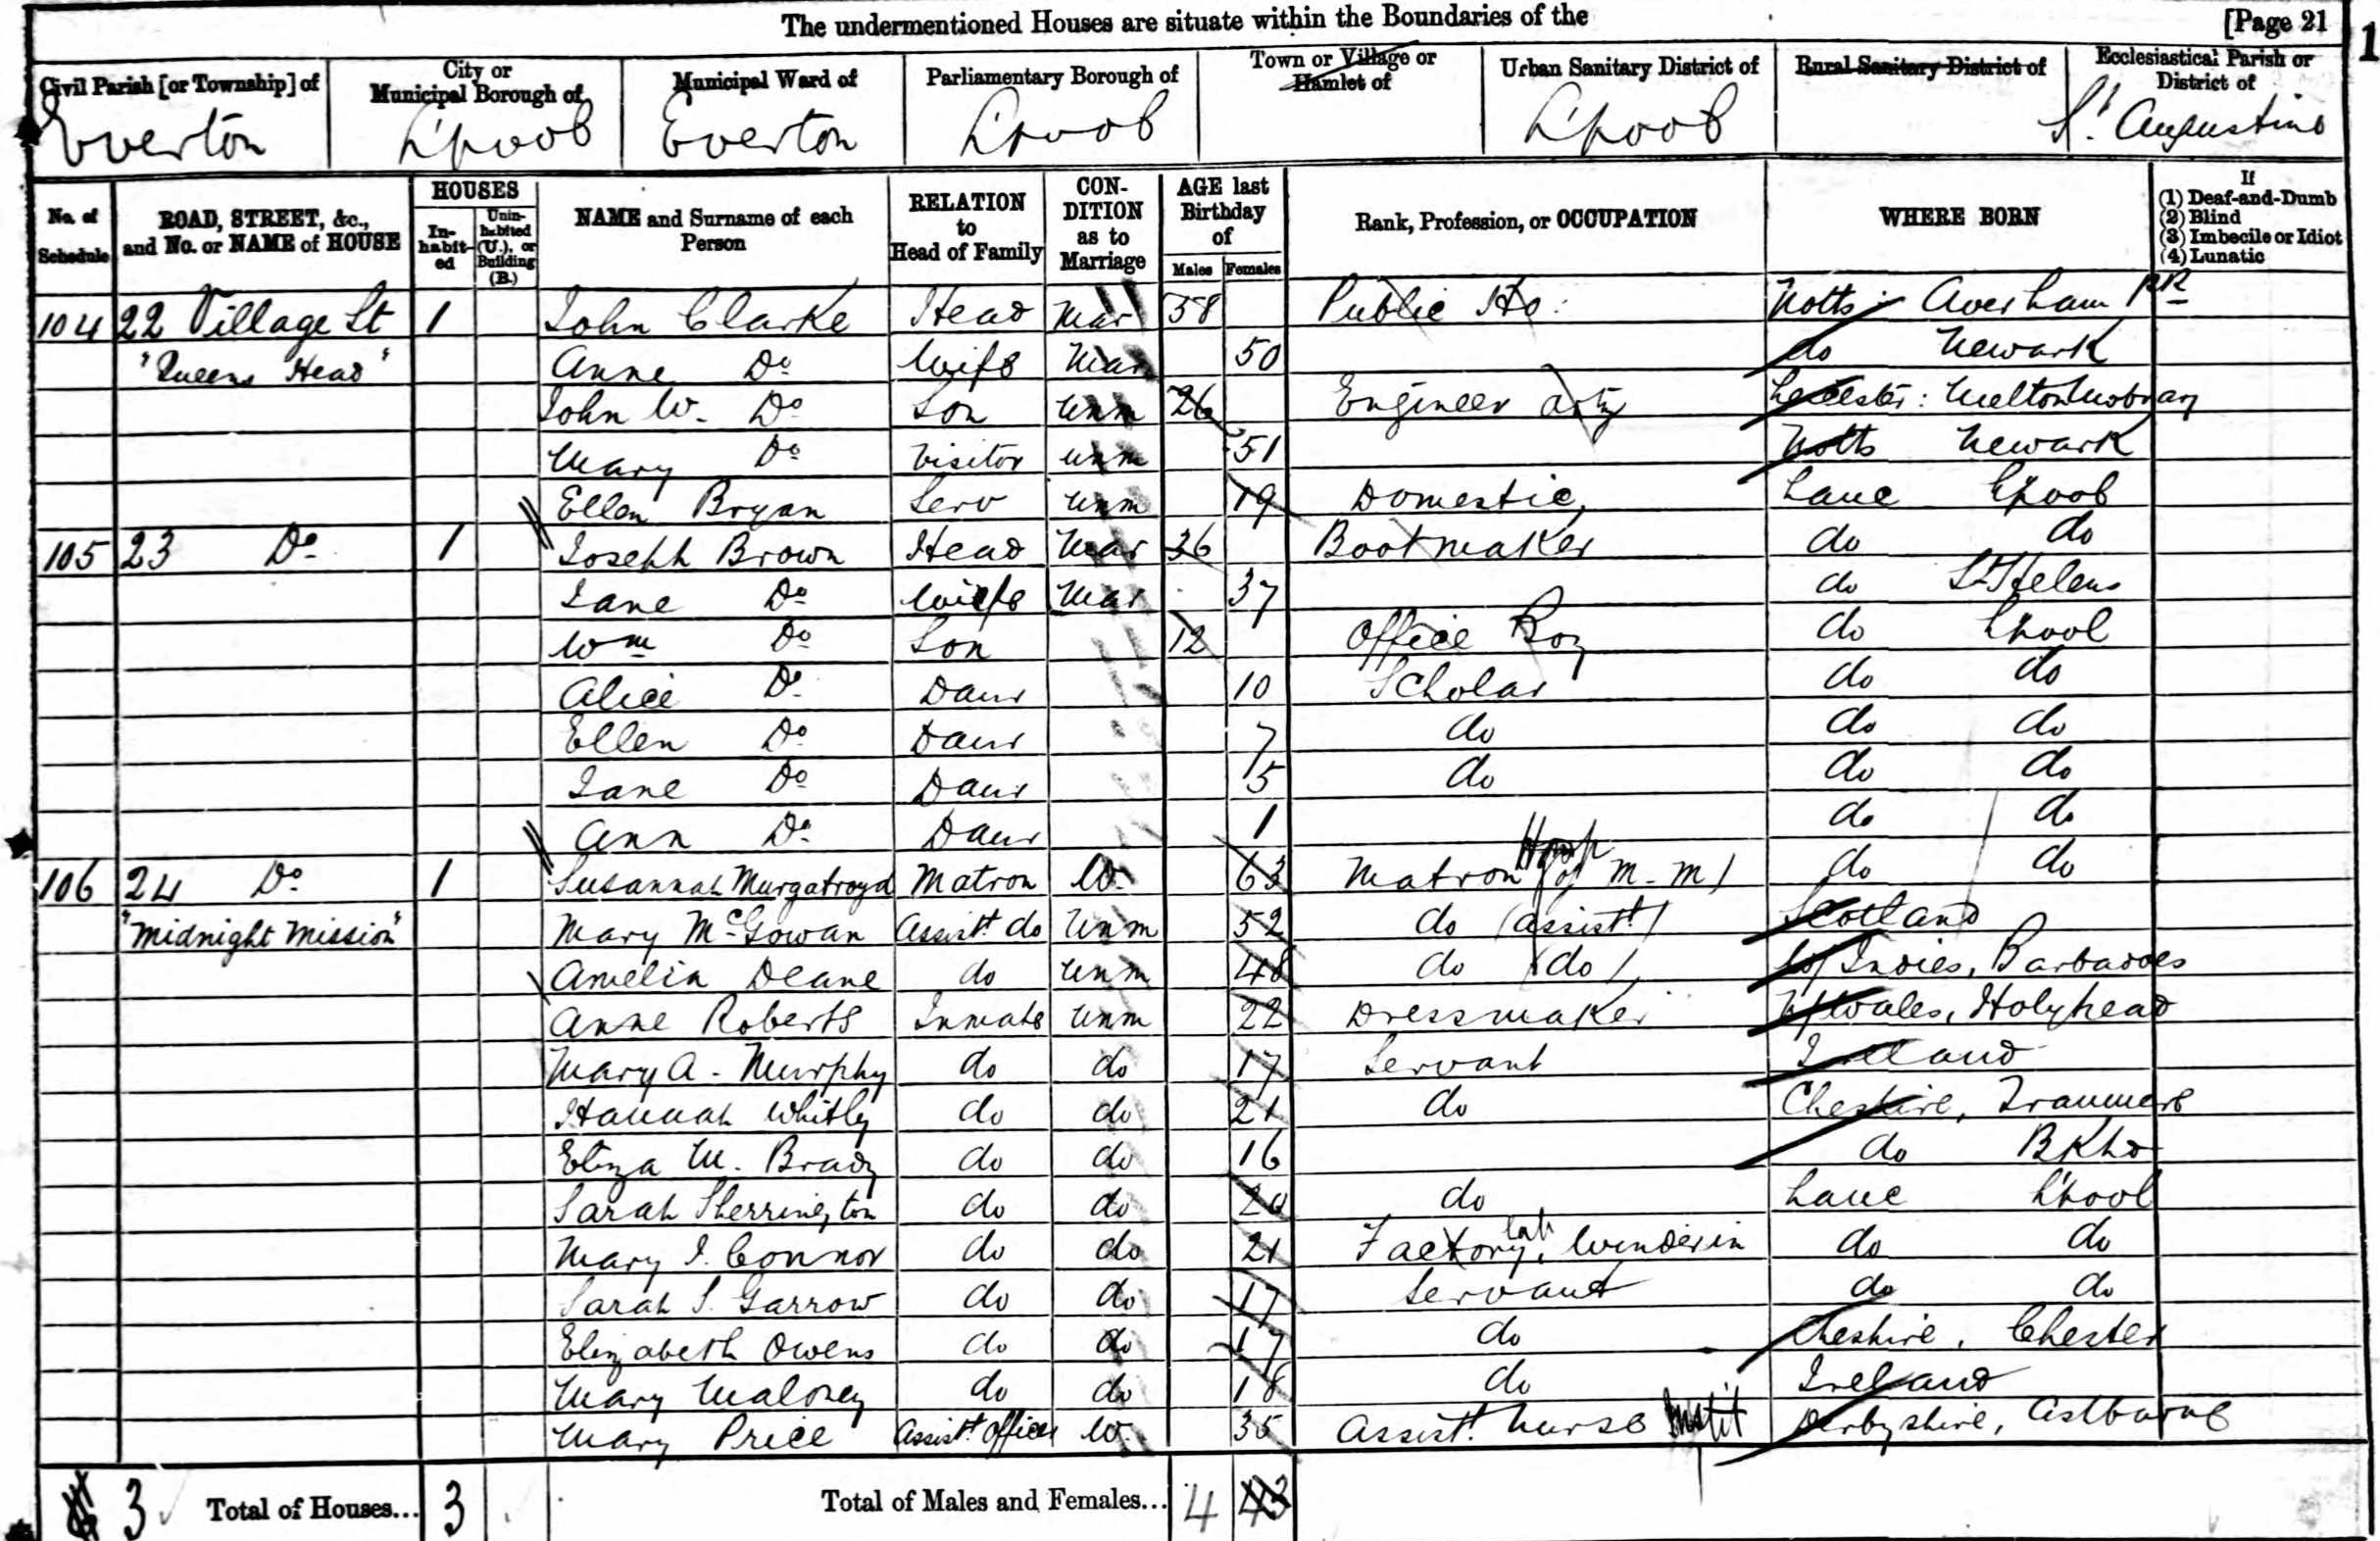 The undermentioned Houses are situate within the Boundaries of the [Page 21
Civil Parish [or Township] of
Everton
City or Municipal Borough of
L'pool
Municipal Ward of
Everton
Parliamentary Borough of
L'pool
Town or Village or Hamlet of
Urban Sanitary District of
L'pool
Rural Sanitary District of
Ecclesiastical Parish or District of
St. Augustine
No. of Schedule
ROAD, STREET, &c., and No. or NAME of HOUSE
HOUSES
In-habit-ed
Unin-habited (U.), or Building (B.)
NAME and Surname of each Person
RELATION to Head of Family
CON-DITION as to Marriage
AGE last Birthday of
Males Females
Rank, Profession, or OCCUPATION
WHERE BORN
If
(1) Deaf-and-Dumb
(2) Blind
(3) Imbecile or Idiot
(4) Lunatic
104 22 Village St 1 John Clarke Head Mar 58 Public Ho: Notts Averham
"Queens Head" Anne Do Wife Mar 50 do Newark
John W. Do Son Unm 26 Engineer Leicester: Melton Mobray
Mary Do Visitor Unm 51 Notts Newark
Ellen Bryan Serv Unm 19 Domestic Lanc L'pool
105 23 Do 1 Joseph Brown Head Mar 36 Bootmaker do do
Jane Do Wife Mar 37 do St Helens
Wm Do Son 12 Office Boy do L'pool
Alice Do Daur 10 Scholar do do
Ellen Do Daur 7 do do do
Jane Do Daur 5 do do do
Ann Do Daur 1 do do
106 24 Do 1 Susannah Murgatroyd Matron W. 63 Matron Hosp (of M. M) do do
"Midnight Mission" Mary McGowan Assist do Unm 52 do (assist) Scotland
Amelia Deane do Unm 48 do (do) W/Indies, Barbadoes
Anne Roberts Inmate Unm 22 Dressmaker N/Wales, Holyhead
Mary A. Murphy do do 17 Servant Ireland
Hannah Whitley do do 21 do Cheshire, Tranmere
Eliza M. Brady do do 16 do BKhd
Sarah Sherrington do do 20 do Lanc L'pool
Mary J. Connor do do 21 Factory lab. do do
Sarah S. Garrow do do 17 Servant do do
Elizabeth Owens do do 17 do Cheshire, Chester
Mary Maloney do do 18 do Ireland
Mary Price Assist. Officer W. 35 Assist. Nurse Instit Derbyshire, Ashburne
3 Total of Houses... 3 Total of Males and Females... 4